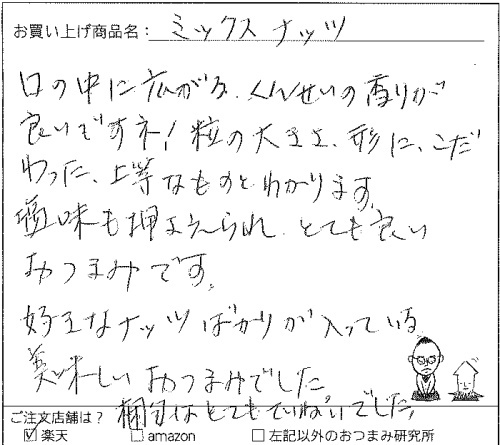 お買い上げ商品名： ミックスナッツ
口の中に広がる、くんせいの香りが
良いですネ！粒の大きさ、形に、こだ
わった、上等なものとわかります。
塩味も押さえられ、とても良い
おつまみです。
好きなナッツばかりが入っている
美味しいおつまみでした
梱包はとてもていねいでした。
ご注文店舗は？
☑楽天 □amazon □左記以外のおつまみ研究所